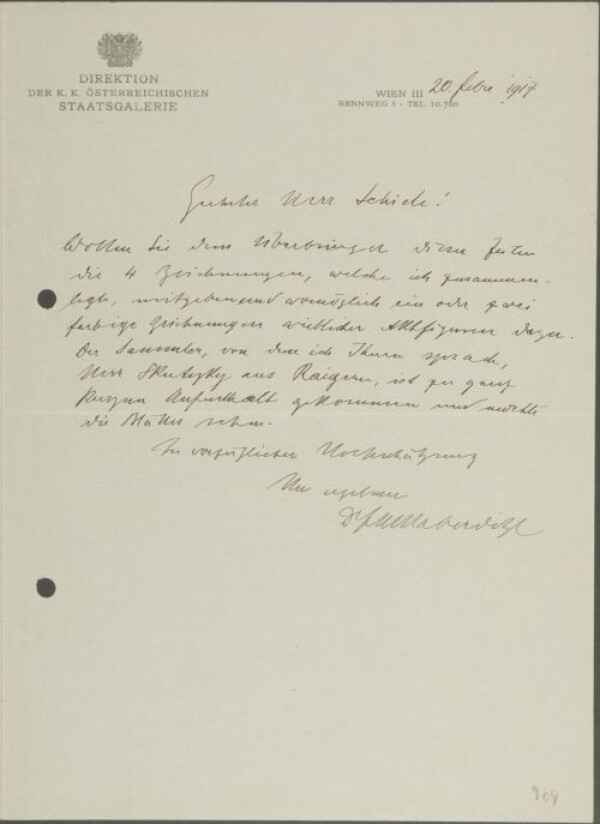 DIREKTION
DER K. K. ÖSTERREICHISCHEN
STAATSGALERIE
WIEN III 20. Febr. 1917
RENNWEG 6 - TEL. 10.760
Geehrter Herr Schiele!
Wollen Sie dem Überbringer dieser Zeilen
die 4 Zeichnungen, welche ich zusammen-
legte, mitgeben und womöglich ein oder zwei
farbige Zeichnungen weiblicher Aktfiguren dazu.
Der Sammler, von dem ich Ihnen sprach,
Herr Skutezky aus Raigern, ist zu ganz
kurzem Aufenthalt gekommen und möchte
die Blätter sehen.
In vorzüglicher Hochschätzung
Ihr ergebener
Dr FM Haberditzl
904